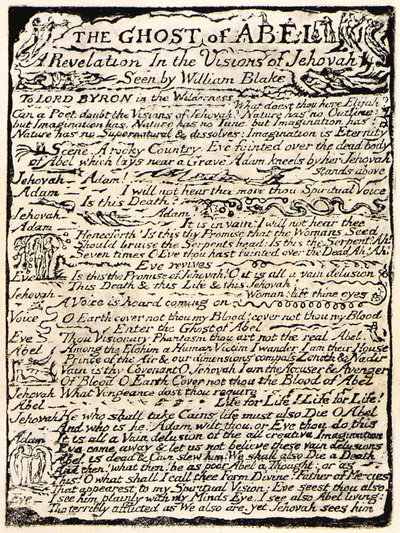 THE GHOST of ABEL
A Revelation In the Visions of Jehovah
Seen by William Blake
To LORD BYRON in the Wilderness
What doest thou here Elijah?
Can a Poet doubt the Visions of Jehovah? Nature has no Outline:
but Imagination has. Nature has no Tune: but Imagination has!
Nature has no Supernatural & dissolves: Imagination is Eternity
Scene. A rocky Country. Eve fainted over the dead body
of Abel which lays near a Grave. Adam kneels by her Jehovah
stands above
Jehovah Adam!
Adam I will not hear thee more thou Spiritual Voice
Is this Death?
Jehovah Adam!
Adam It is in vain: I will not hear thee
Henceforth! Is this thy Promise that the Womans Seed
Should bruise the Serpents head: Is this the Serpent? Ah!
Seven times, O Eve thou hast fainted over the Dead Ah! Ah!
Eve revives
Eve Is this the Promise of Jehovah! O it is all a vain delusion
This Death & this Life & this Jehovah!
Jehovah Woman! lift thine eyes to
A Voice is heard coming on
Voice O Earth cover not thou my Blood! cover not thou my Blood
Enter the Ghost of Abel
Eve Thou Visionary Phantasm thou art not the real Abel.
Abel Among the Elohim a Human Victim I wander I am their House
Prince of the Air & our dimensions compass Zenith & Nadir
Vain is thy Covenant O Jehovah I am the Accuser & Avenger
Of Blood O Earth Cover not thou the Blood of Abel
Jehovah What Vengeance dost thou require
Abel Life for Life! Life for Life!
Jehovah He who shall take Cains life must also Die O Abel
And who is he? Adam wilt thou, or Eve thou do this
Adam It is all a Vain delusion of the all creative Imagination
Eve come away & let us not believe these vain delusions
Abel is dead & Cain slew him! We shall also Die a Death
And then! what then? be as poor Abel a Thought: or as
This! O what shall I call thee Form Divine: Father of Mercies
That appearest to my Spiritual Vision: Eve seest thou also
Eve I see him plainly with my Minds Eye. I see also Abel living:
Tho terribly afflicted as We also are. yet Jehovah sees him